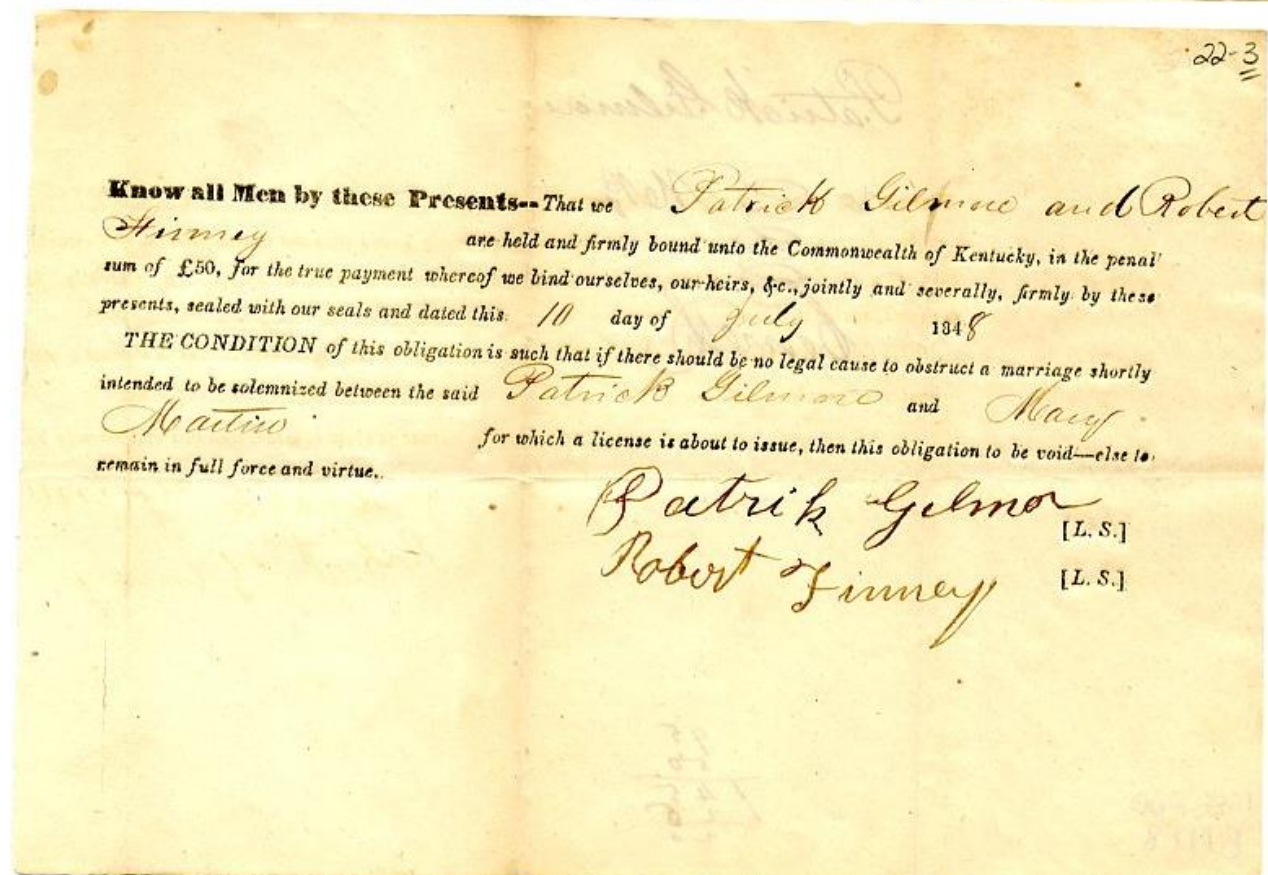 22-3
Know all Men by these Presents-- That we Patrick Gilmore and Robert
Finney are held and firmly bound unto the Commonwealth of Kentucky, in the penal
sum of £50, for the true payment whereof we bind ourselves, our heirs, &c., jointly and severally, firmly by these
presents, sealed with our seals and dated this 10 day of July 1848
THE CONDITION of this obligation is such that if there should be no legal cause to obstruct a marriage shortly
intended to be solemnized between the said Patrick Gilmore and Mary
Martin for which a license is about to issue, then this obligation to be void—else to
remain in full force and virtue.
Patrik Gilmor [L. S.]
Robert Finney [L. S.]